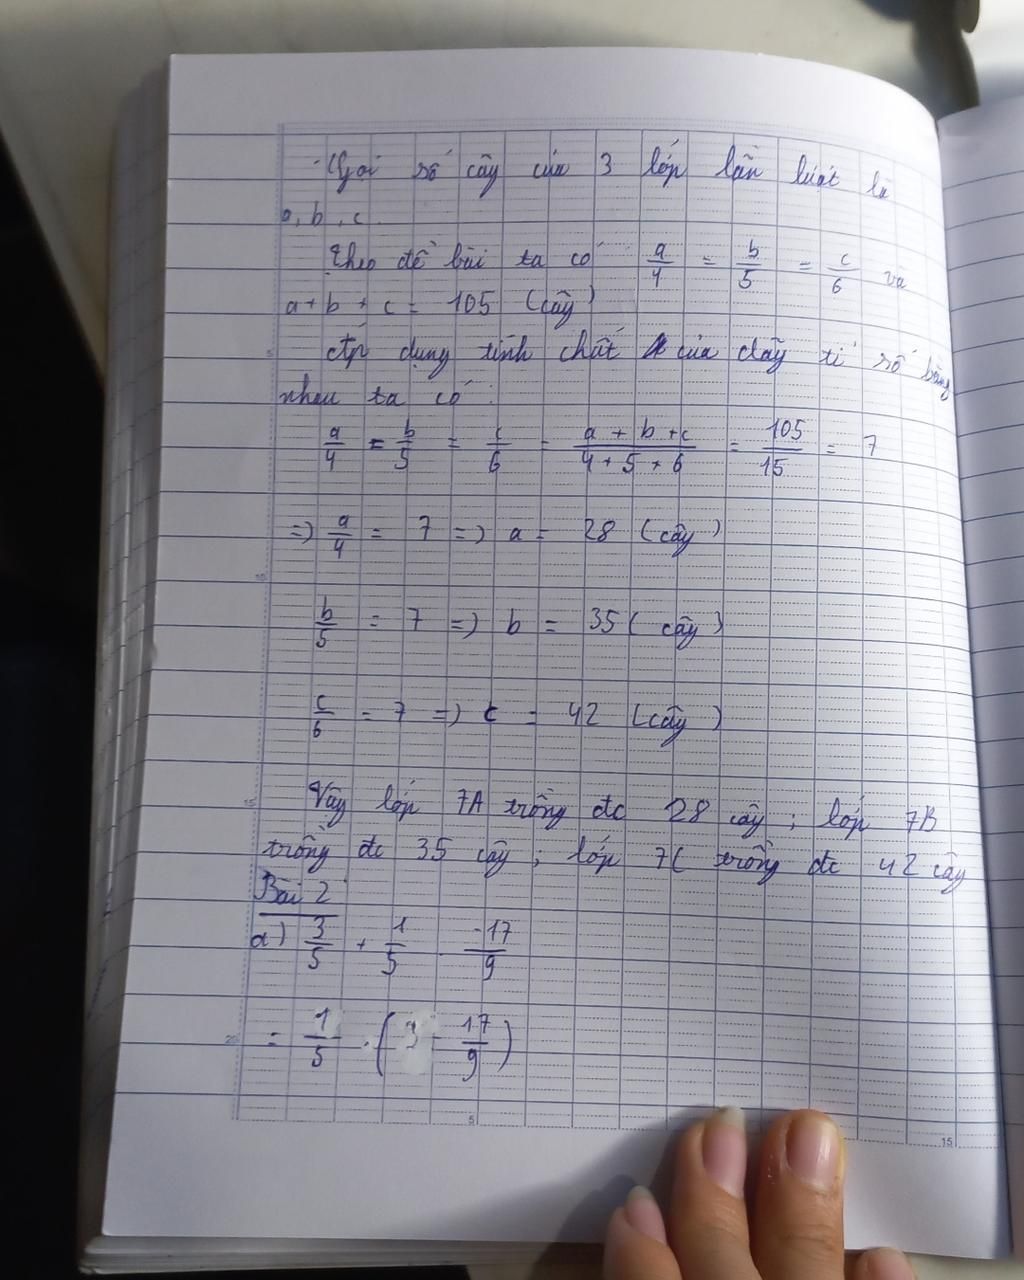 Gọi số cây của 3 lớp lần lượt là
a, b, c.
Theo đề bài ta có a/4 = b/5 = c/6 và
a + b + c = 105 (cây)
Áp dụng tính chất của dãy tỉ số bằng
nhau ta có :
a/4 = b/5 = c/6 = (a + b + c)/(4 + 5 + 6) = 105/15 = 7
=) a/4 = 7 =) a = 28 (cây)
b/5 = 7 =) b = 35 ( cây )
c/6 = 7 =) c = 42 (cây )
Vậy lớp 7A trồng đc 28 cây ; lớp 7B
trồng đc 35 cây ; lớp 7C trồng đc 42 cây
Bài 2
a) 3/5 + 1/5 . -17/9
= 1/5 . (3 - 17/9)
5
10
15
20
5
15